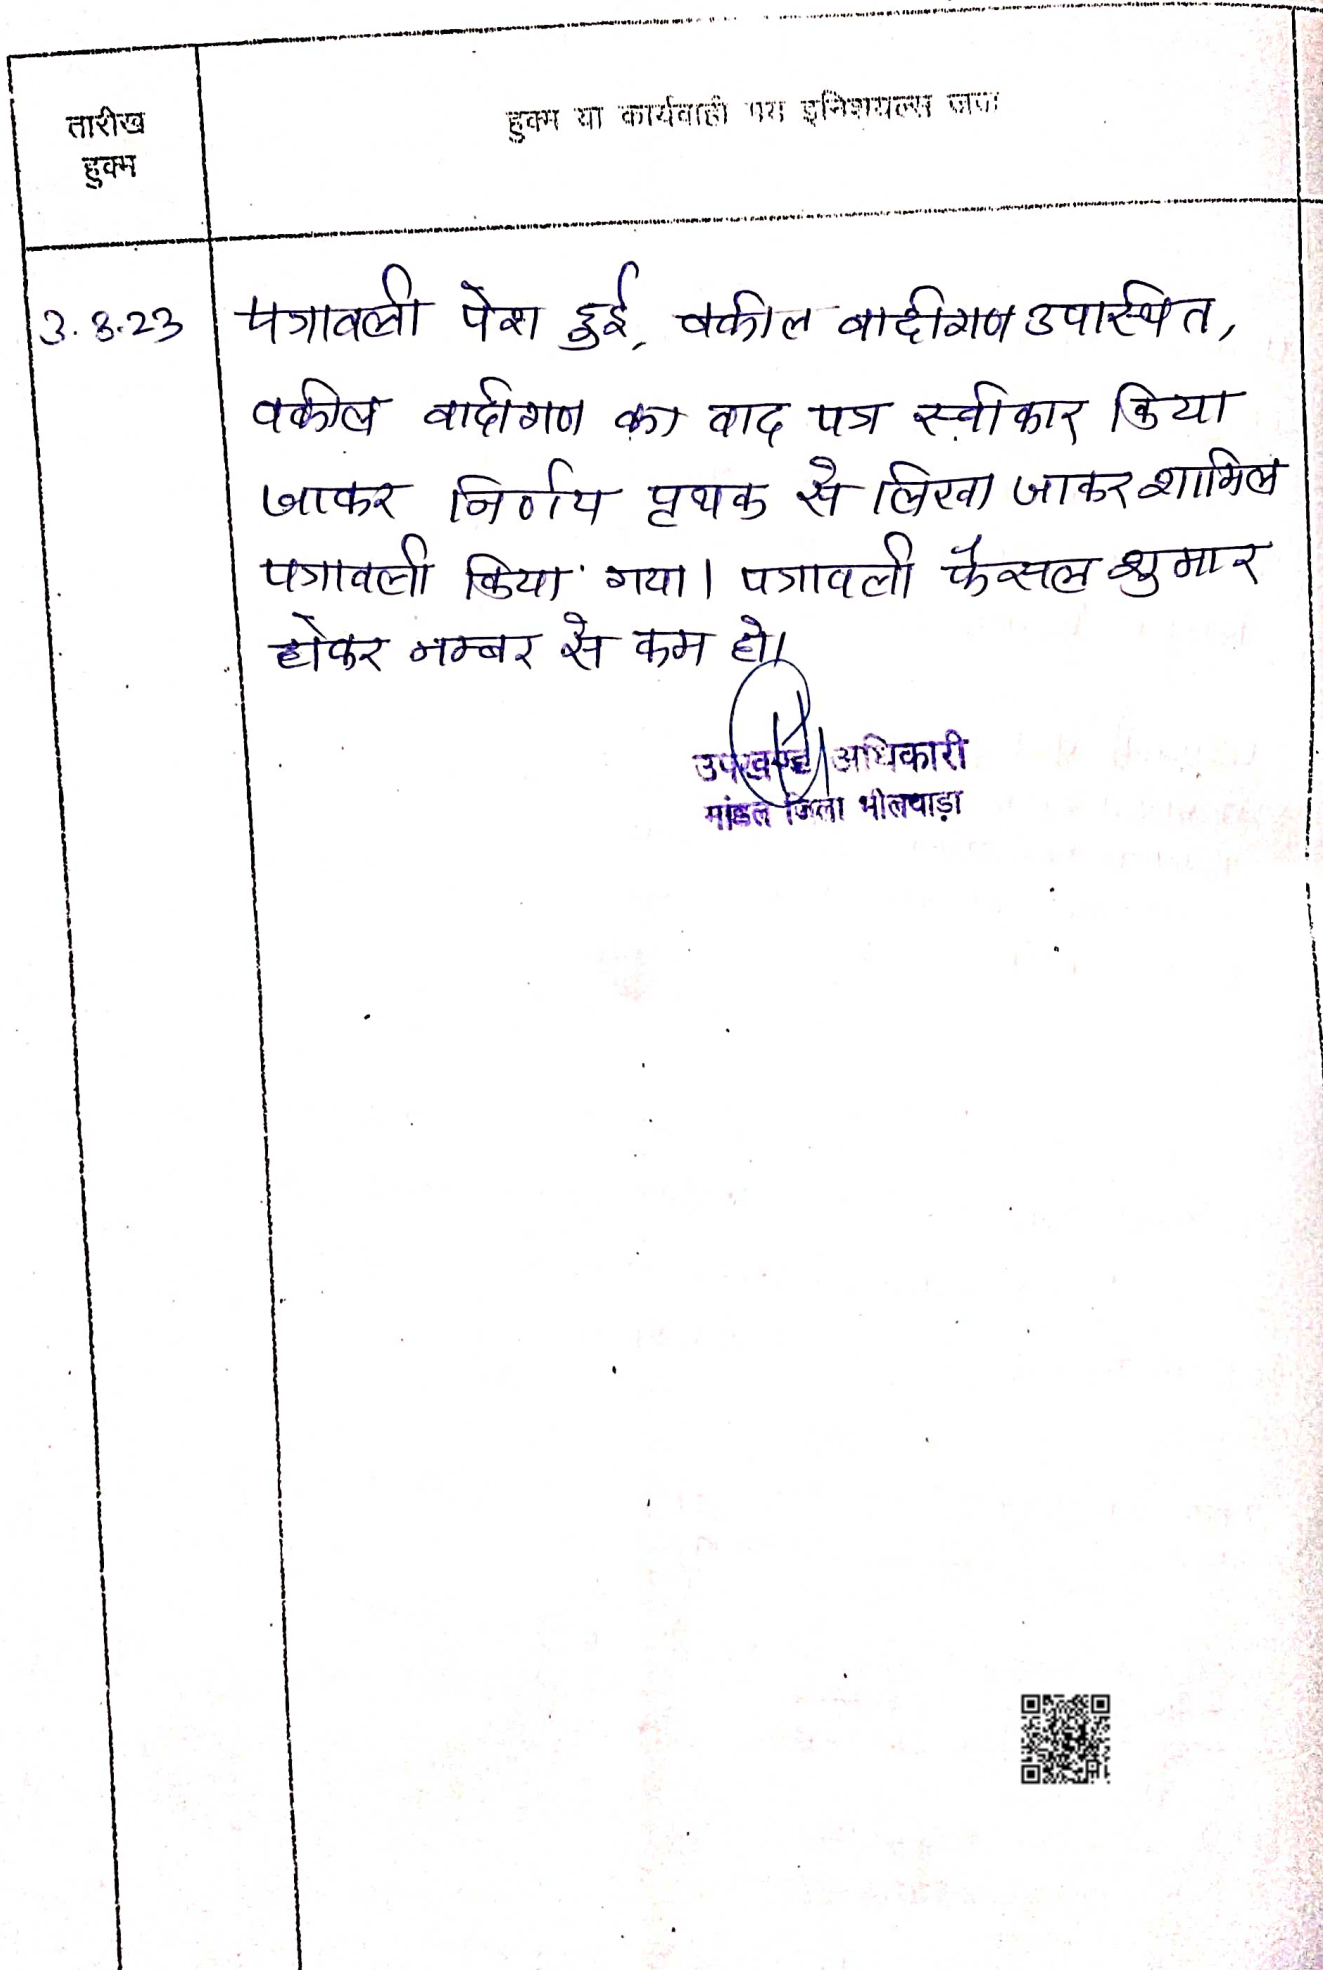 तारीख
हुक्म
हुक्म या कार्यवाही मय इनिशयल्स जज
3.3.23
पत्रावली पेश हुई, वकील वादीगण उपस्थित,
वकील वादीगण का वाद पत्र स्वीकार किया
जाकर निर्णय पृथक से लिखा जाकर शामिल
पत्रावली किया गया। पत्रावली फैसल शुमार
होकर नम्बर से कम हो।
उपखण्ड अधिकारी
मांडल जिला भीलवाड़ा